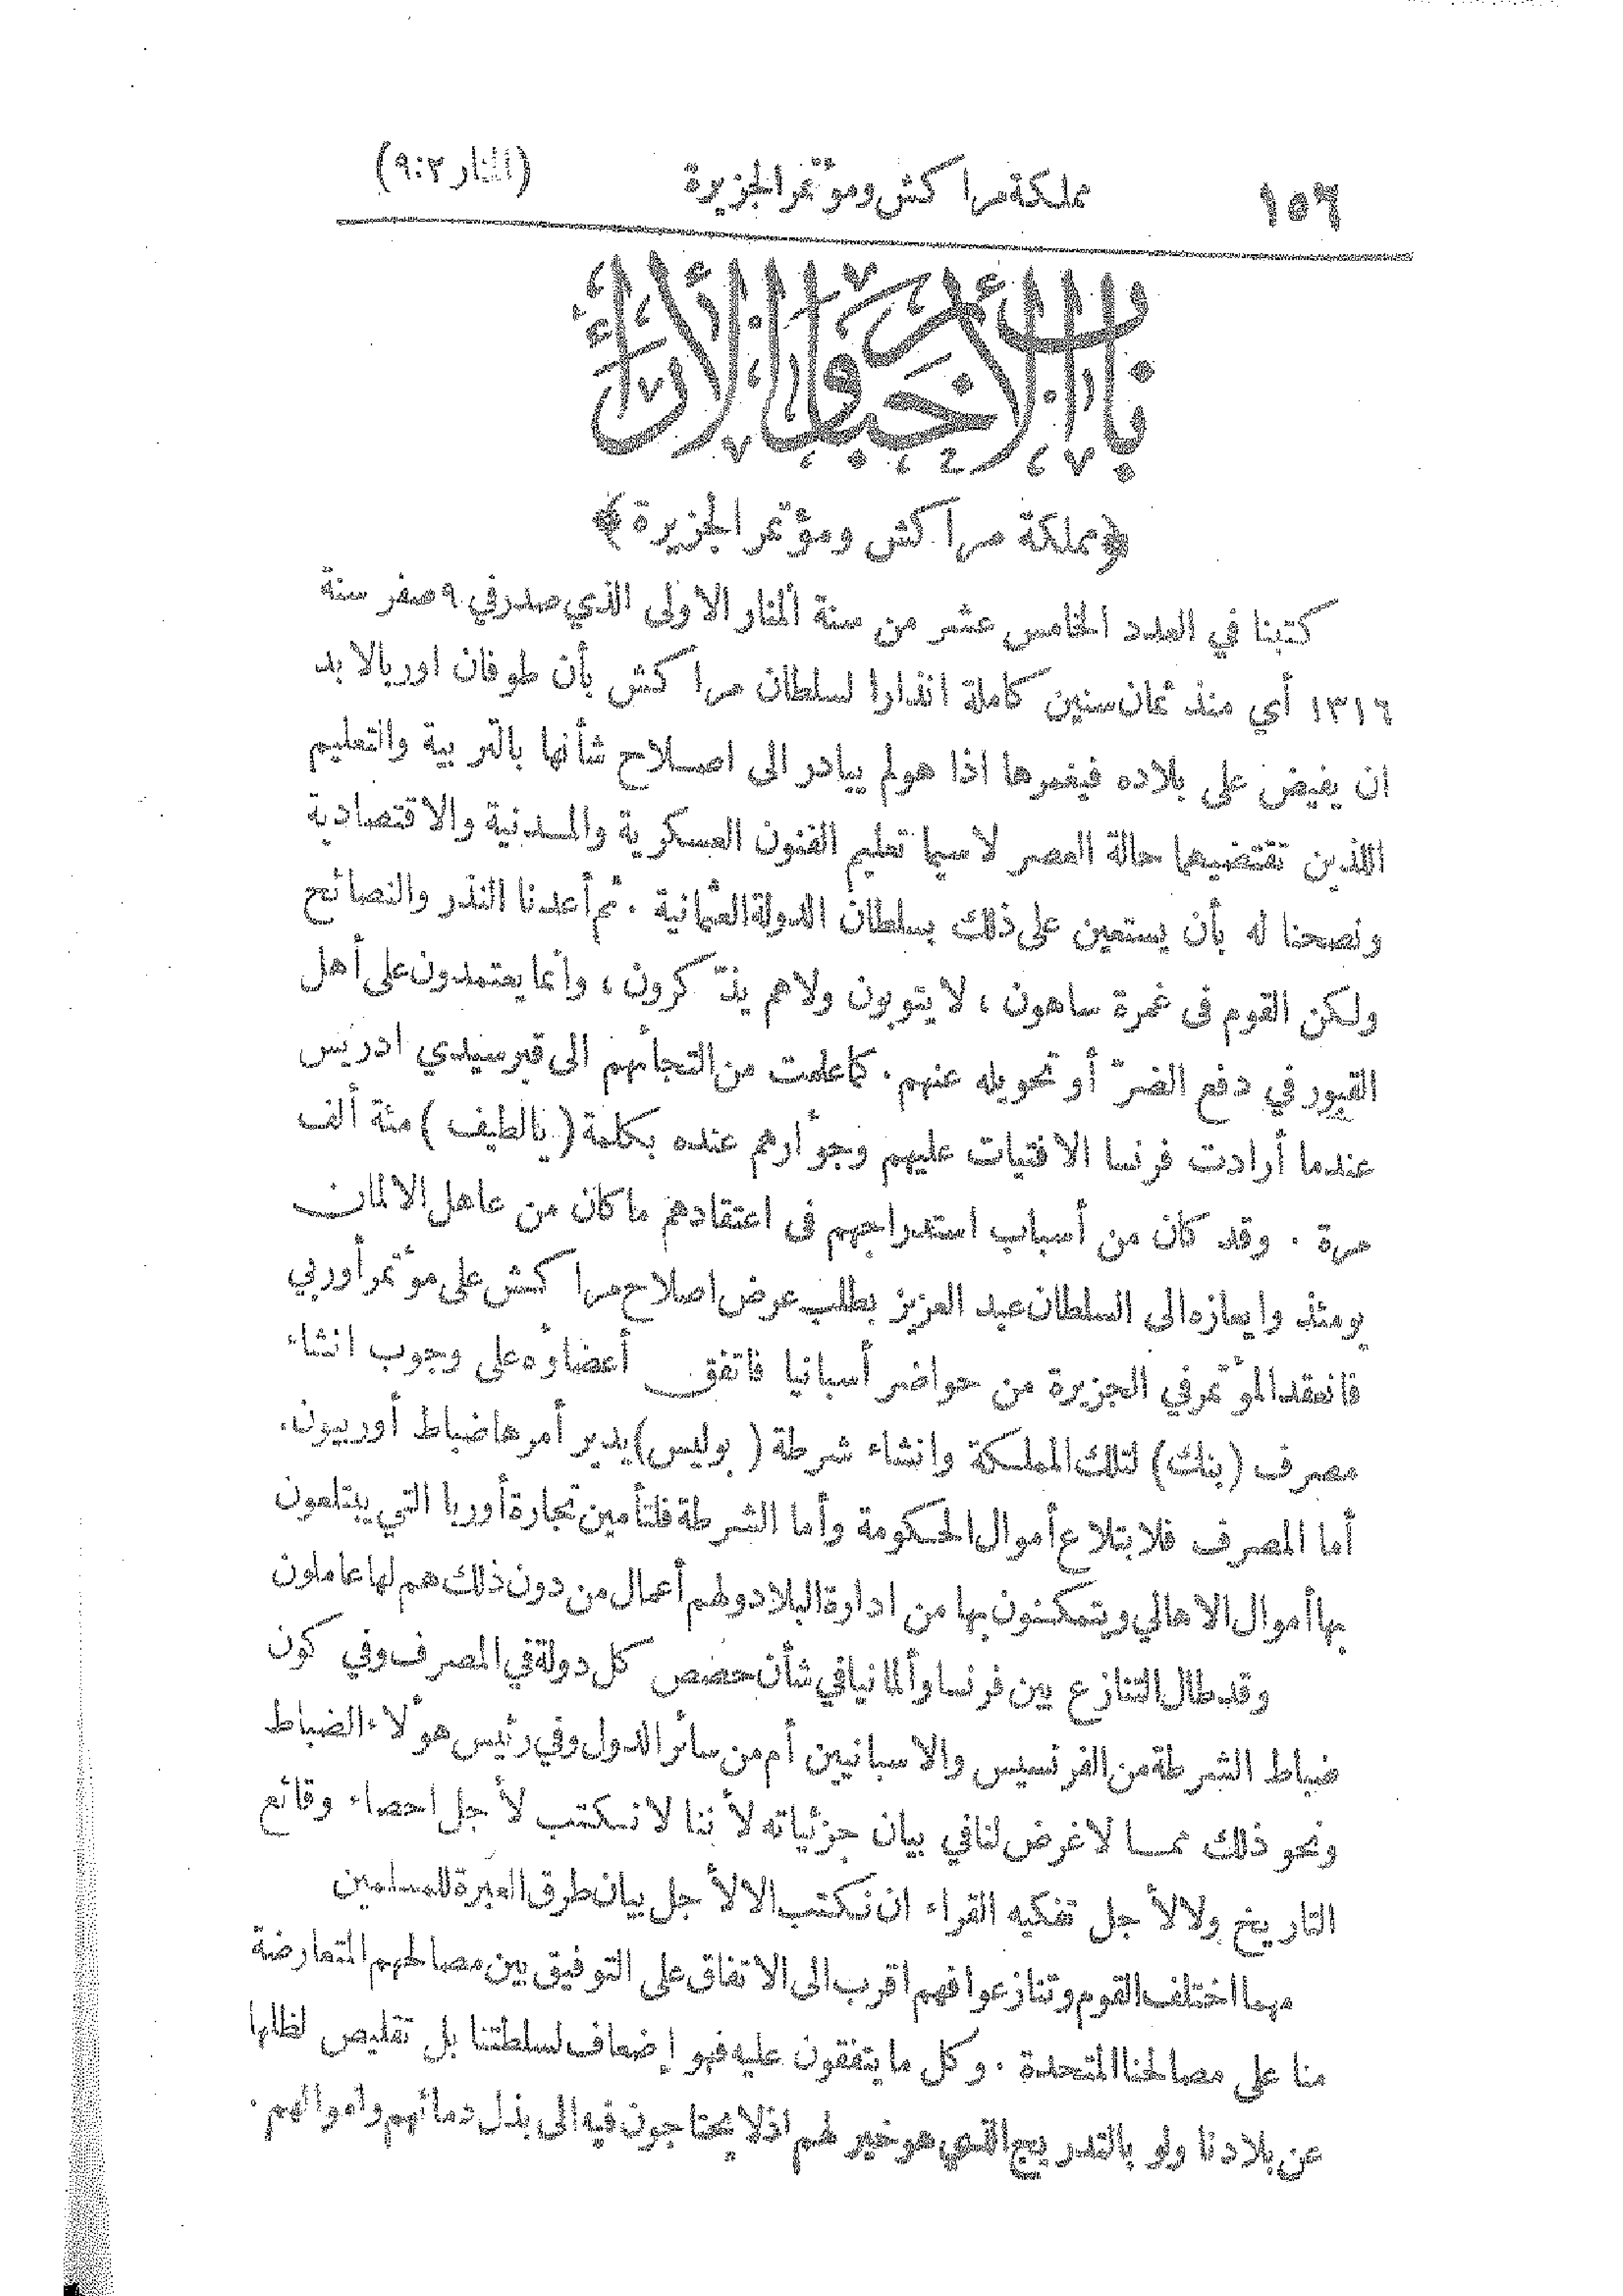 ١٥٦ مملكة مراكش ومؤتمر الجزيرة (المنار ٢:٩)
باب الاخبار والآراء
﴿مملكة مراكش ومؤتمر الجزيرة﴾
كتبنا في العدد الخامس عشر من سنة المنار الاولى الذي صدر في ٩ صفر سنة
١٣١٦ أي منذ ثمان سنين كاملة انذارا لسلطان مراكش بأن طوفان اوربا لا بد
ان يفيض على بلاده فيغمرها اذا هو لم يبادر الى اصلاح شأنها بالتربية والتعليم
اللذين تقتضيهما حالة العصر لا سيما تعليم الفنون العسكرية والمدنية والاقتصادية
ونصحنا له بأن يستعين على ذلك بسلطان الدولة العثمانية . ثم أعدنا النذر والنصائح
ولكن القوم في غمرة ساهون ، لا يتوبون ولا هم يذّكرون ، وانما يعتمدون على أهل
القبور في دفع الضرّ أو تحويله عنهم . كما علمت من التجائهم الى قبر سيدي ادريس
عندما أرادت فرنسا الافتيات عليهم وجؤارهم عنده بكلمة ( يا لطيف ) مئة ألف
مرة . وقد كان من أسباب استدراجهم في اعتقادهم ما كان من عاهل الالمان
يومئذ وايعازه الى السلطان عبد العزيز بطلب عرض اصلاح مراكش على مؤتمر أوربي
فانعقد المؤتمر في الجزيرة من حواضر أسبانيا فاتفق أعضاؤه على وجوب انشاء
مصرف (بنك) لتلك المملكة وانشاء شرطة ( بوليس ) يدير أمرها ضباط أوربيون .
أما المصرف فلابتلاع أموال الحكومة وأما الشرطة فلتأمين تجارة أوربا التي يبتلعون
بها أموال الاهالي ويتمكنون بها من ادارة البلاد ولهم أعمال من دون ذلك هم لها عاملون
وقد طال التنازع بين فرنسا وألمانيا في شأن حصص كل دولة في المصرف وفي كون
ضباط الشرطة من الفرنسيس والاسبانيين أم من سائر الدول وفي رئيس هؤلاء الضباط
ونحو ذلك مما لا غرض لنا في بيان جزئياته لأننا لا نكتب لأجل احصاء وقائع
التاريخ ولا لأجل تفكيه القراء ان نكتب الا لأجل بيان طرق العبرة للمسلمين
مهما اختلف القوم وتنازعوا فهم اقرب الى الاتفاق على التوفيق بين مصالحهم المتعارضة
منا على مصالحنا المتحدة . وكل ما يتفقون عليه فهو إضعاف لسلطتنا بل تقليص لظلها
عن بلادنا ولو بالتدريج الذي هو خير لهم اذ لا يحتاجون فيه الى بذل دمائهم واموالهم .